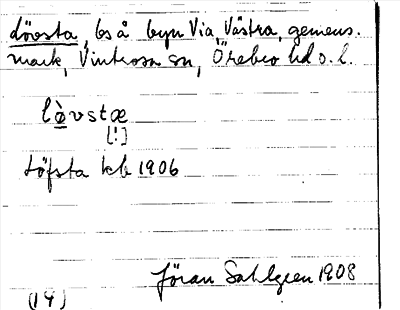 Lövsta, bs å byn Via, Västra, gemens.
mark, Vintrosa sn, Örebro hd o. l.
lø̀vstæ
[!]
Löfsta kb 1906
Jöran Sahlgren 1908
(14)